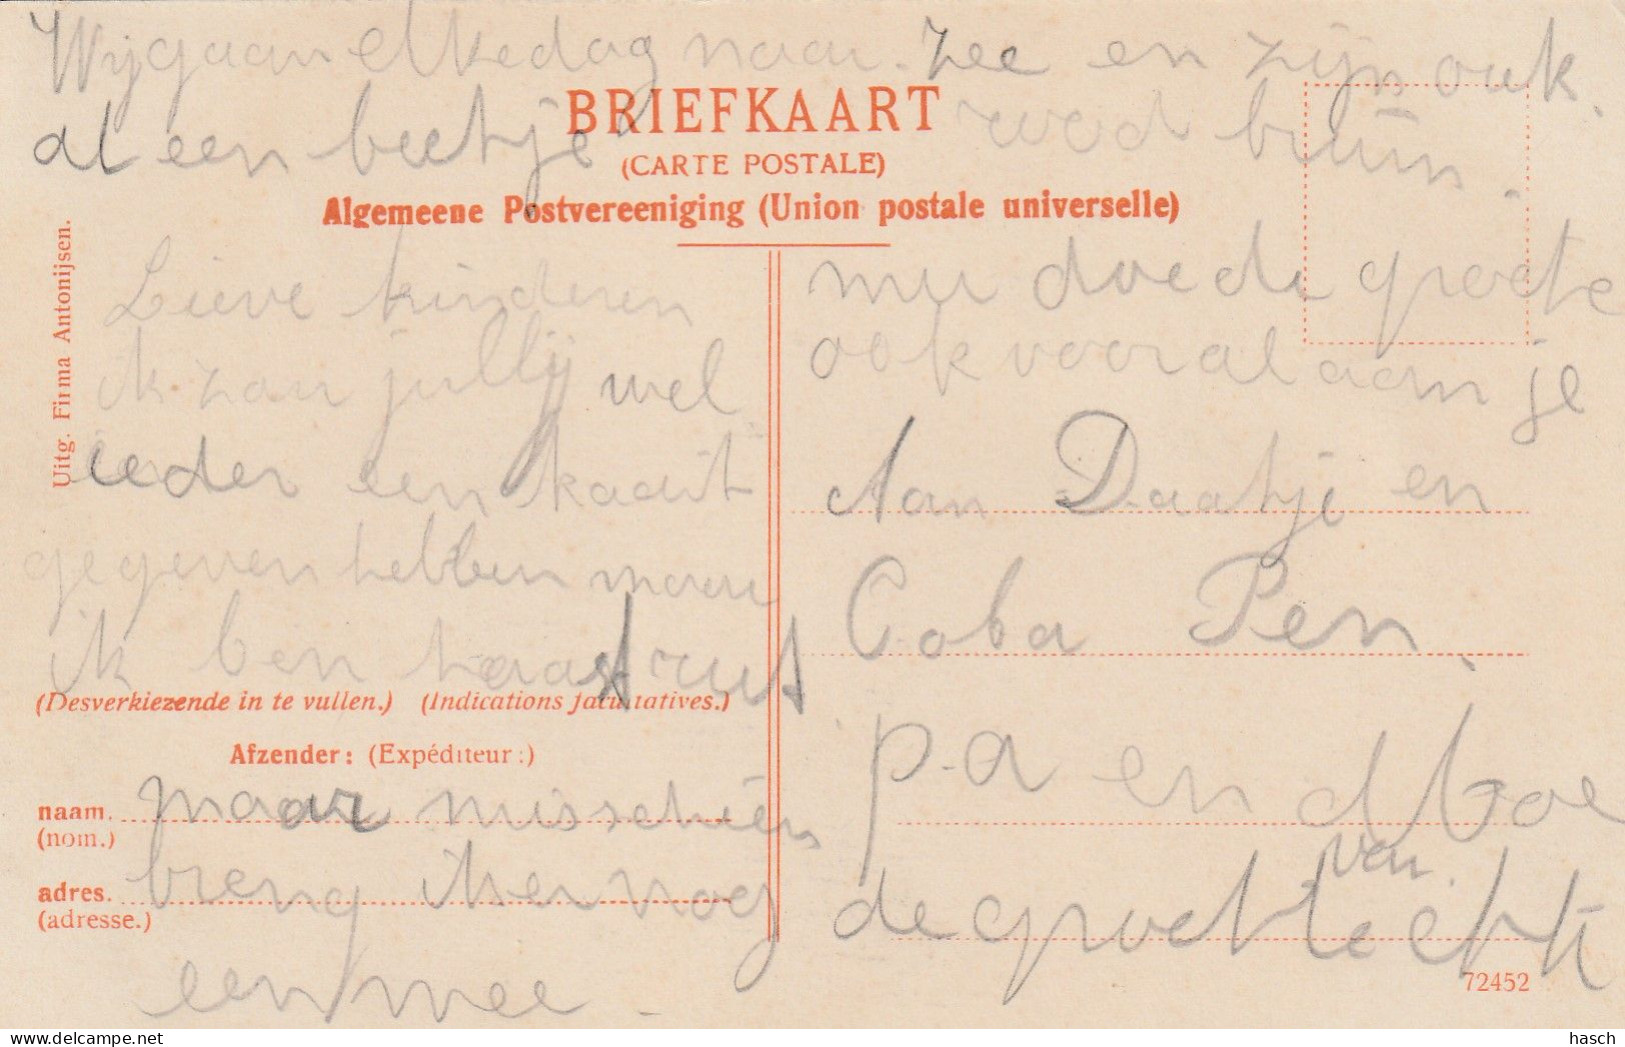 Wij gaan elke dag naar zee en zijn ook
al een beetje rood bruin.
BRIEFKAART
(CARTE POSTALE)
Algemeene Postvereeniging (Union postale universelle)
Uitg. Firma Antonijsen.
Lieve kinderen
ik zou jullij wel
ieder een kaart
gegeven hebben maar
ik ben haast rut
(Desverkiezende in te vullen.) (Indications facultatives.)
Afzender: (Expéditeur:)
naam.
(nom.)
maar misschien
adres.
(adresse.)
breng ik er nog
een mee.
nu doe de groete
ook vooral aan je
Aan Daatje en
Coba Pen.
pa en d Moe
van
de groete
72452
hasch
hasch